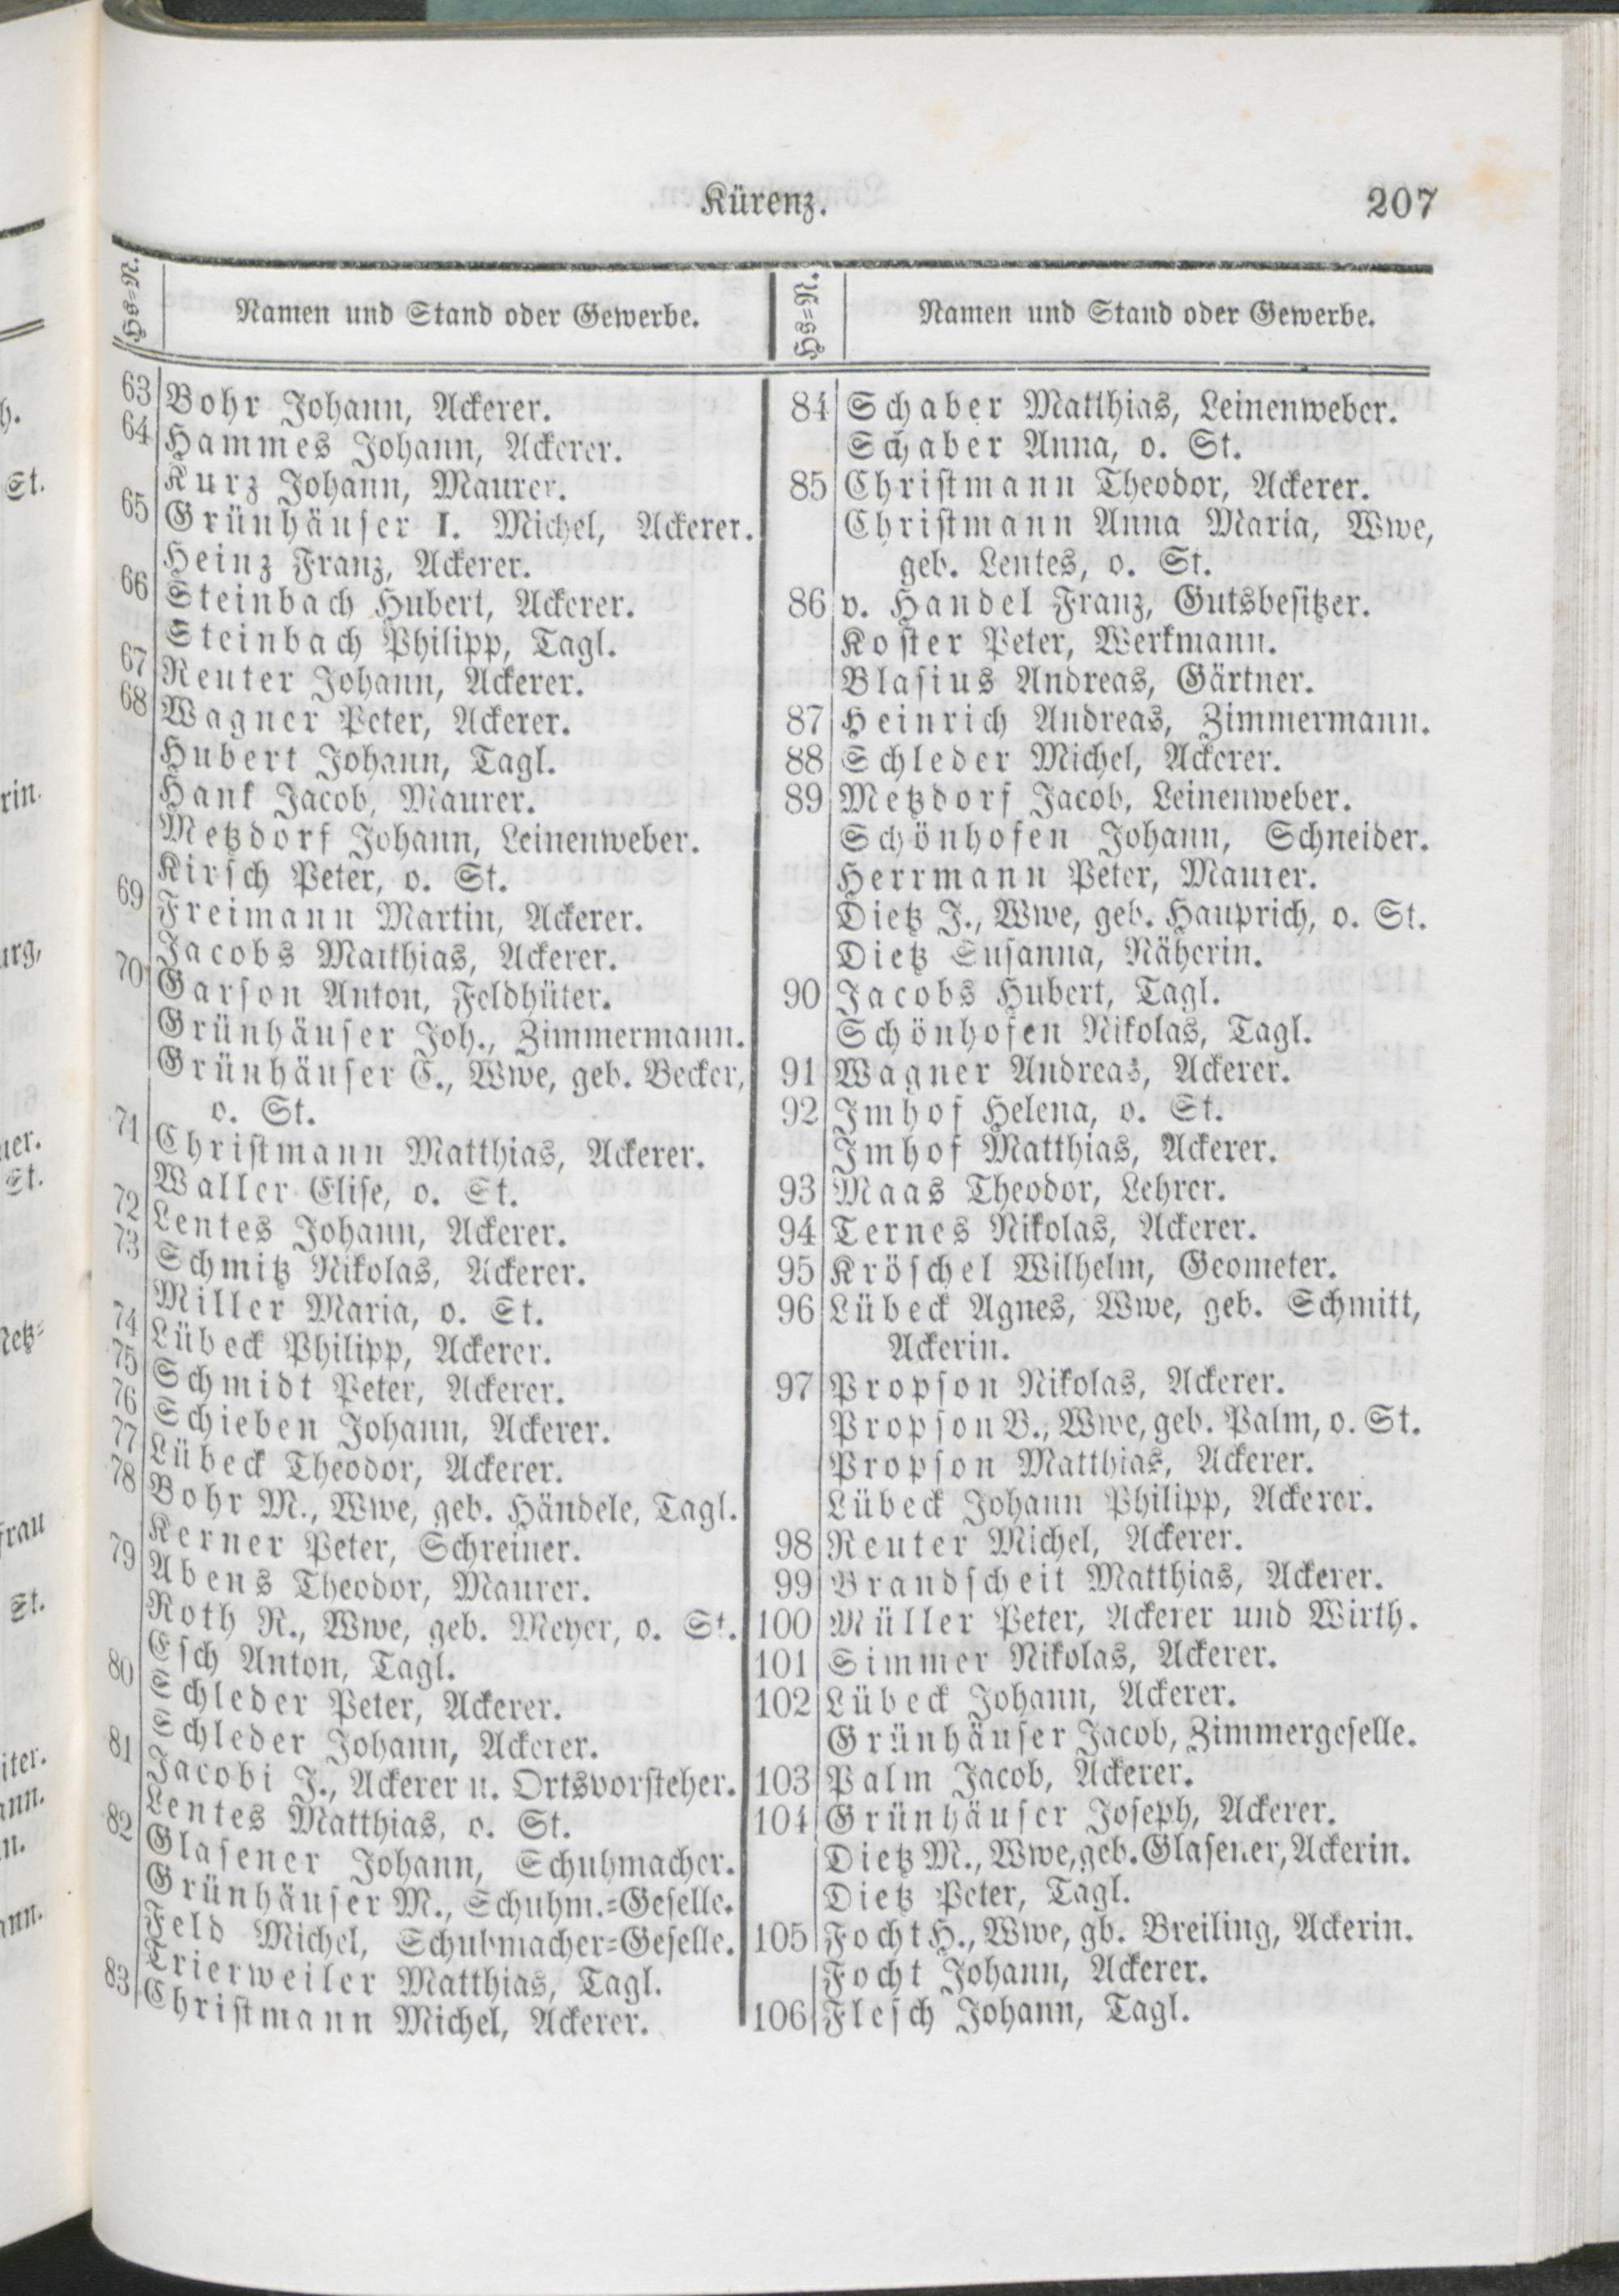 Kürenz.
207
Hs=N.
Namen und Stand oder Gewerbe.
63 Bohr Johann, Ackerer.
64 Hammes Johann, Ackerer.
Kurz Johann, Maurer.
65 Grünhäuser I. Michel, Ackerer.
Heinz Franz, Ackerer.
66 Steinbach Hubert, Ackerer.
Steinbach Philipp, Tagl.
67 Reuter Johann, Ackerer.
68 Wagner Peter, Ackerer.
Hubert Johann, Tagl.
Hank Jacob, Maurer.
Metzdorf Johann, Leinenweber.
Kirsch Peter, o. St.
69 Freimann Martin, Ackerer.
Jacobs Matthias, Ackerer.
70 Garson Anton, Feldhüter.
Grünhäuser Joh., Zimmermann.
Grünhäuser C., Wwe, geb. Becker,
o. St.
71 Christmann Matthias, Ackerer.
Waller Elise, o. St.
72 Lentes Johann, Ackerer.
73 Schmitz Nikolas, Ackerer.
Miller Maria, o. St.
74 Lübeck Philipp, Ackerer.
75 Schmidt Peter, Ackerer.
76 Schieben Johann, Ackerer.
77 Lübeck Theodor, Ackerer.
78 Bohr M., Wwe, geb. Händele, Tagl.
Kerner Peter, Schreiner.
79 Abens Theodor, Maurer.
Roth N., Wwe, geb. Meyer, o. St.
Esch Anton, Tagl.
80 Schleder Peter, Ackerer.
Schleder Johann, Ackerer.
81 Jacobi J., Ackerer u. Ortsvorsteher.
Lentes Matthias, o. St.
82 Glasener Johann, Schuhmacher.
Grünhäuser M., Schuhm.=Geselle.
Feld Michel, Schuhmacher=Geselle.
Trierweiler Matthias, Tagl.
83 Christmann Michel, Ackerer.
Hs=N.
Namen und Stand oder Gewerbe.
84 Schaber Matthias, Leinenweber.
Schaber Anna, o. St.
85 Christmann Theodor, Ackerer.
Christmann Anna Maria, Wwe,
geb. Lentes, o. St.
86 v. Handel Franz, Gutsbesitzer.
Koster Peter, Werkmann.
Blasius Andreas, Gärtner.
87 Heinrich Andreas, Zimmermann.
88 Schleder Michel, Ackerer.
89 Metzdorf Jacob, Leinenweber.
Schönhofen Johann, Schneider.
Herrmann Peter, Maurer.
Dietz J., Wwe, geb. Hauprich, o. St.
Dietz Susanna, Näherin.
90 Jacobs Hubert, Tagl.
Schönhofen Nikolas, Tagl.
91 Wagner Andreas, Ackerer.
92 Imhof Helena, o. St.
Imhof Matthias, Ackerer.
93 Maas Theodor, Lehrer.
94 Ternes Nikolas, Ackerer.
95 Kröschel Wilhelm, Geometer.
96 Lübeck Agnes, Wwe, geb. Schmitt,
Ackerin.
97 Propson Nikolas, Ackerer.
Propson B., Wwe, geb. Palm, o. St.
Propson Matthias, Ackerer.
Lübeck Johann Philipp, Ackerer.
98 Reuter Michel, Ackerer.
99 Brandscheit Matthias, Ackerer.
100 Müller Peter, Ackerer und Wirth.
101 Simmer Nikolas, Ackerer.
102 Lübeck Johann, Ackerer.
Grünhäuser Jacob, Zimmergeselle.
103 Palm Jacob, Ackerer.
104 Grünhäuser Joseph, Ackerer.
Dietz M., Wwe, geb. Glasener, Ackerin.
Dietz Peter, Tagl.
105 Focht H., Wwe, gb. Breiling, Ackerin.
Focht Johann, Ackerer.
106 Flesch Johann, Tagl.